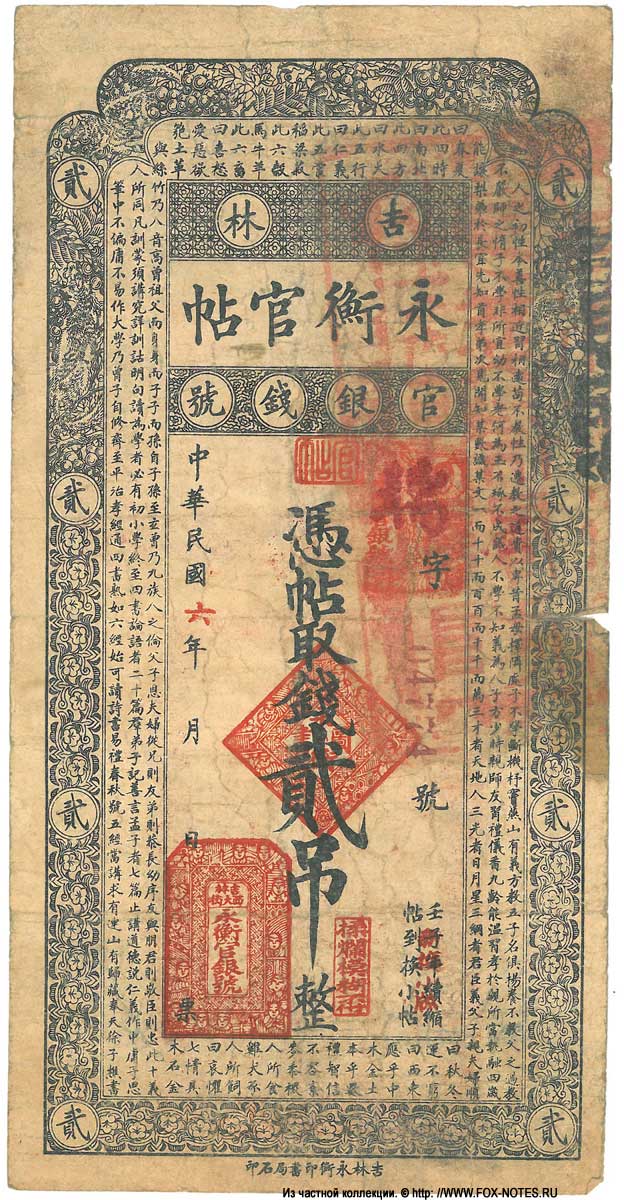 貳
貳
吉林
永衡官帖
官銀錢號
字
號
憑帖取錢貳吊整
中華民國六年 月 日
票
永衡官銀號
帖到換小帖
人之初性本善性相近習相遠苟不教性乃遷教之道貴以專昔孟母擇鄰處子不學斷機杼竇燕山有義方教五子名俱揚養不教父之過教
不嚴師之惰子不學非所宜幼不學老何為玉不琢不成器人不學不知義為人子方少時親師友習禮儀香九齡能溫習孝於親所當執融四歲
能讓梨弟於長宜先知首孝弟次見聞知某數識某文一而十十而百百而千千而萬三才者天地人三光者日月星三綱者君臣義父子親夫婦順
曰春夏
曰秋冬
此四時
運不窮
曰南北
曰西東
此四方
應乎中
曰水火
木金土
此五行
本乎數
曰仁義
禮智信
此五常
不容紊
稻粱菽
麥黍稷
此六穀
人所食
馬牛羊
雞犬豕
此六畜
人所飼
曰喜怒
曰哀懼
愛惡欲
七情具
匏土革
木石金
與絲
竹乃八音高曾祖父而身身而子子而孫自子孫至玄曾乃九族人之倫父子恩夫婦從兄則友弟則恭長幼序友與朋君則敬臣則忠此十義
人所同凡訓蒙須講究詳訓詁明句讀為學者必有初小學終至四書論語者二十篇羣弟子記善言孟子者七篇止講道德說仁義作中庸子思
筆中不偏庸不易作大學乃曾子自修齊至平治孝經通四書熟如六經始可讀詩書易禮春秋號五經當講求有連山有歸藏奉天徐子
貳
貳
貳
貳
貳
貳
貳
貳
吉林永衡印書局石印
Из частной коллекции. © http://WWW.FOX-NOTES.RU